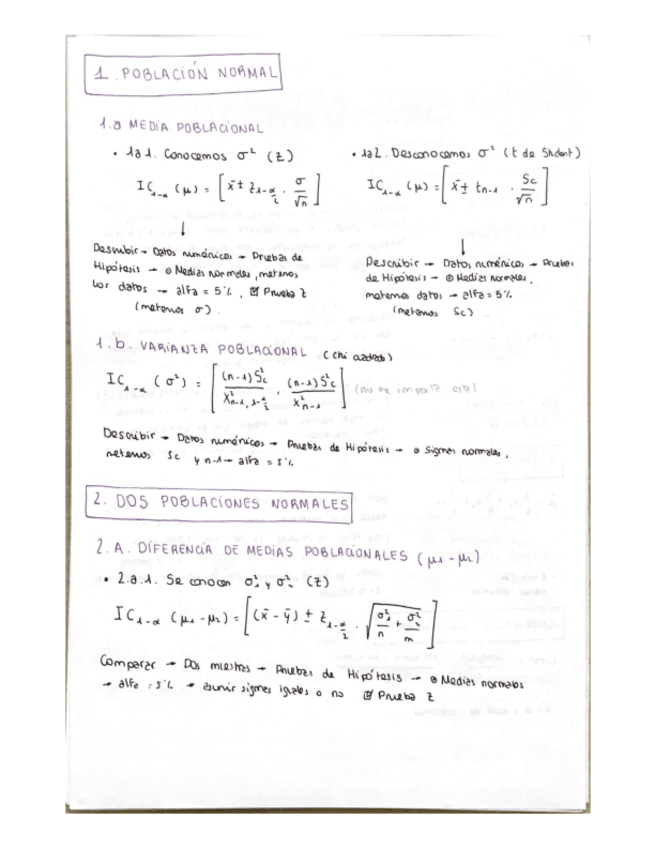 1. POBLACIÓN NORMAL
1.a MEDIA POBLACIONAL
• 1a1. Conocemos σ² (Z)
IC₁₋α (μ) = [x̄ ± z₁₋α/₂ · σ/√n]
↓
Describir → Datos numéricos → Pruebas de
Hipótesis → ⊙ Medias normales, metemos
los datos → alfa = 5%, ☑ Prueba Z
(metemos σ).
• 1a2. Desconocemos σ² (t de Student)
IC₁₋α (μ) = [x̄ ± tₙ₋₁ · Sc/√n]
↓
Describir → Datos numéricos → Pruebas
de Hipótesis → ⊙ Medias normales,
metemos datos → alfa = 5%
(metemos Sc)
1.b. VARIANZA POBLACIONAL (chi
IC₁₋α (σ²) = [(n-1)S²c / χ²ₙ₋₁, ₁₋α/₂ , (n-1)S²c / χ²ₙ₋₁] (no
Describir → Datos numéricos → Pruebas de Hipótesis → ⊙ Sigmas normales,
metemos Sc y n-1 → alfa = 5%
2. DOS POBLACIONES NORMALES
2.A. DIFERENCIA DE MEDIAS POBLACIONALES (μ₁ - μ₂)
• 2.a.1. Se conocen σ²₁ y σ²₂ (Z)
IC₁₋α (μ₁ - μ₂) = [(x̄ - ȳ) ± z₁₋α/₂ · √(σ²₁/n + σ²₂/m)]
Comparar → Dos muestras → Pruebas de Hipótesis → ⊙ Medias normales
→ alfa = 5% → asumir sigmas iguales o no ☑ Prueba Z